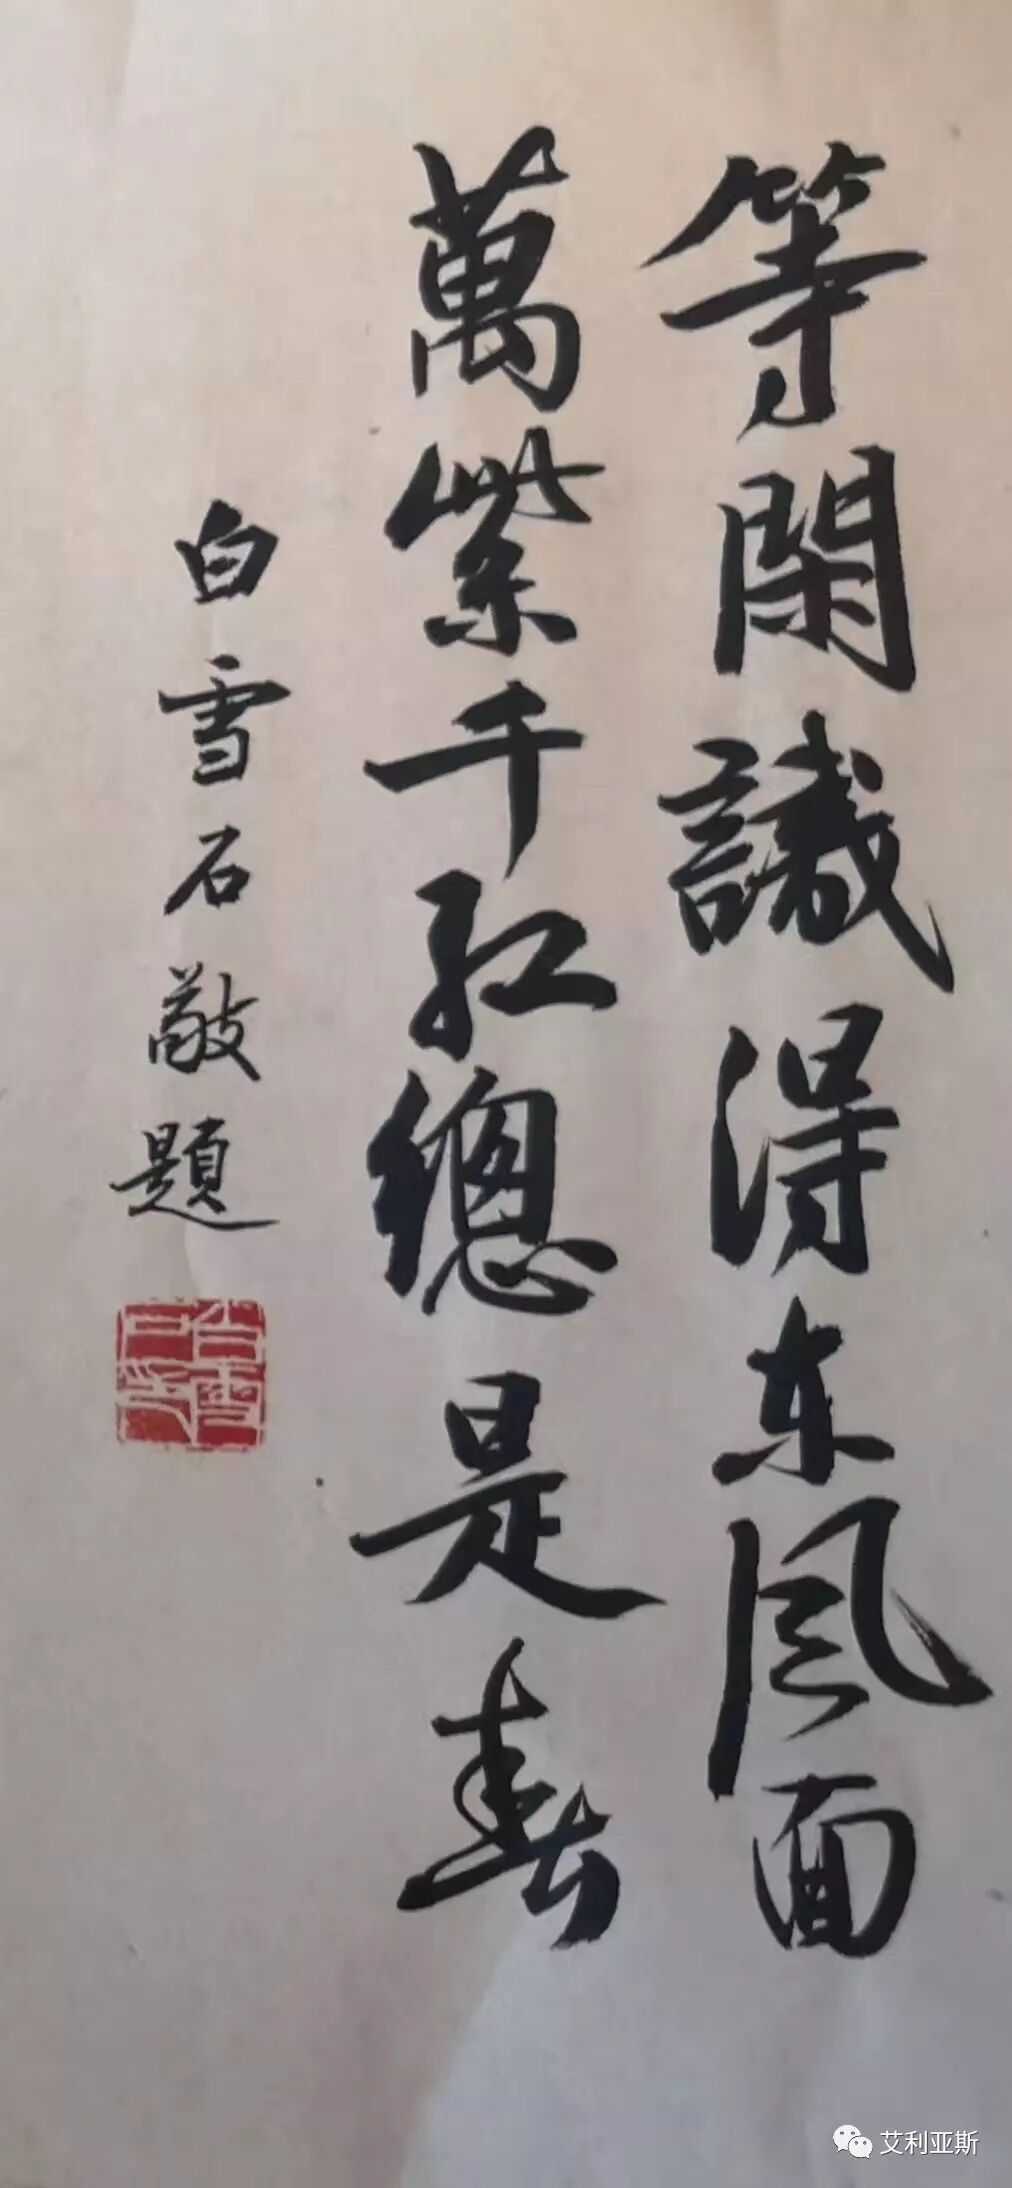 等閑識得东风面
萬紫千红總是春
白雪石敬題
白雪石印
艾利亚斯